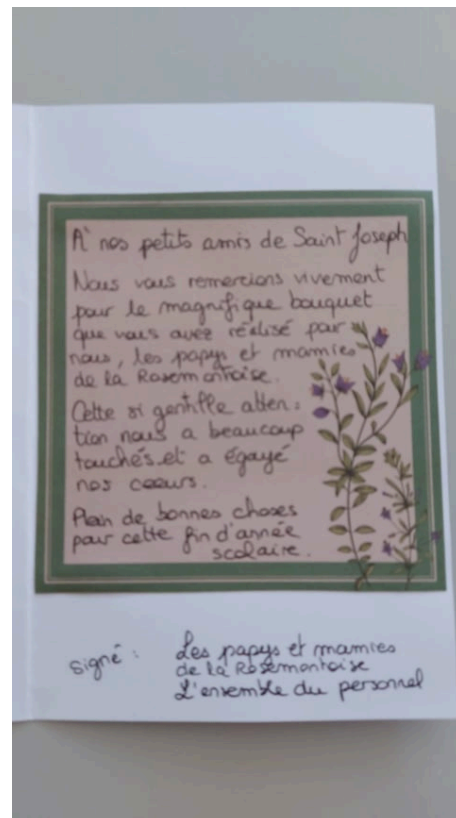 A' nos petits amis de Saint Joseph
Nous vous remercions vivement
pour le magnifique bouquet
que vous avez réalisé par
nous, les papys et mamies
de la Rosemontoise.
Cette si gentille atten :
tion nous a beaucoup
touchés et a égayé
nos coeurs.
Plein de bonnes choses
pour cette fin d'année
scolaire.
signé : Les papys et mamies
de la Rosemontoise
L'ensemble du personnel